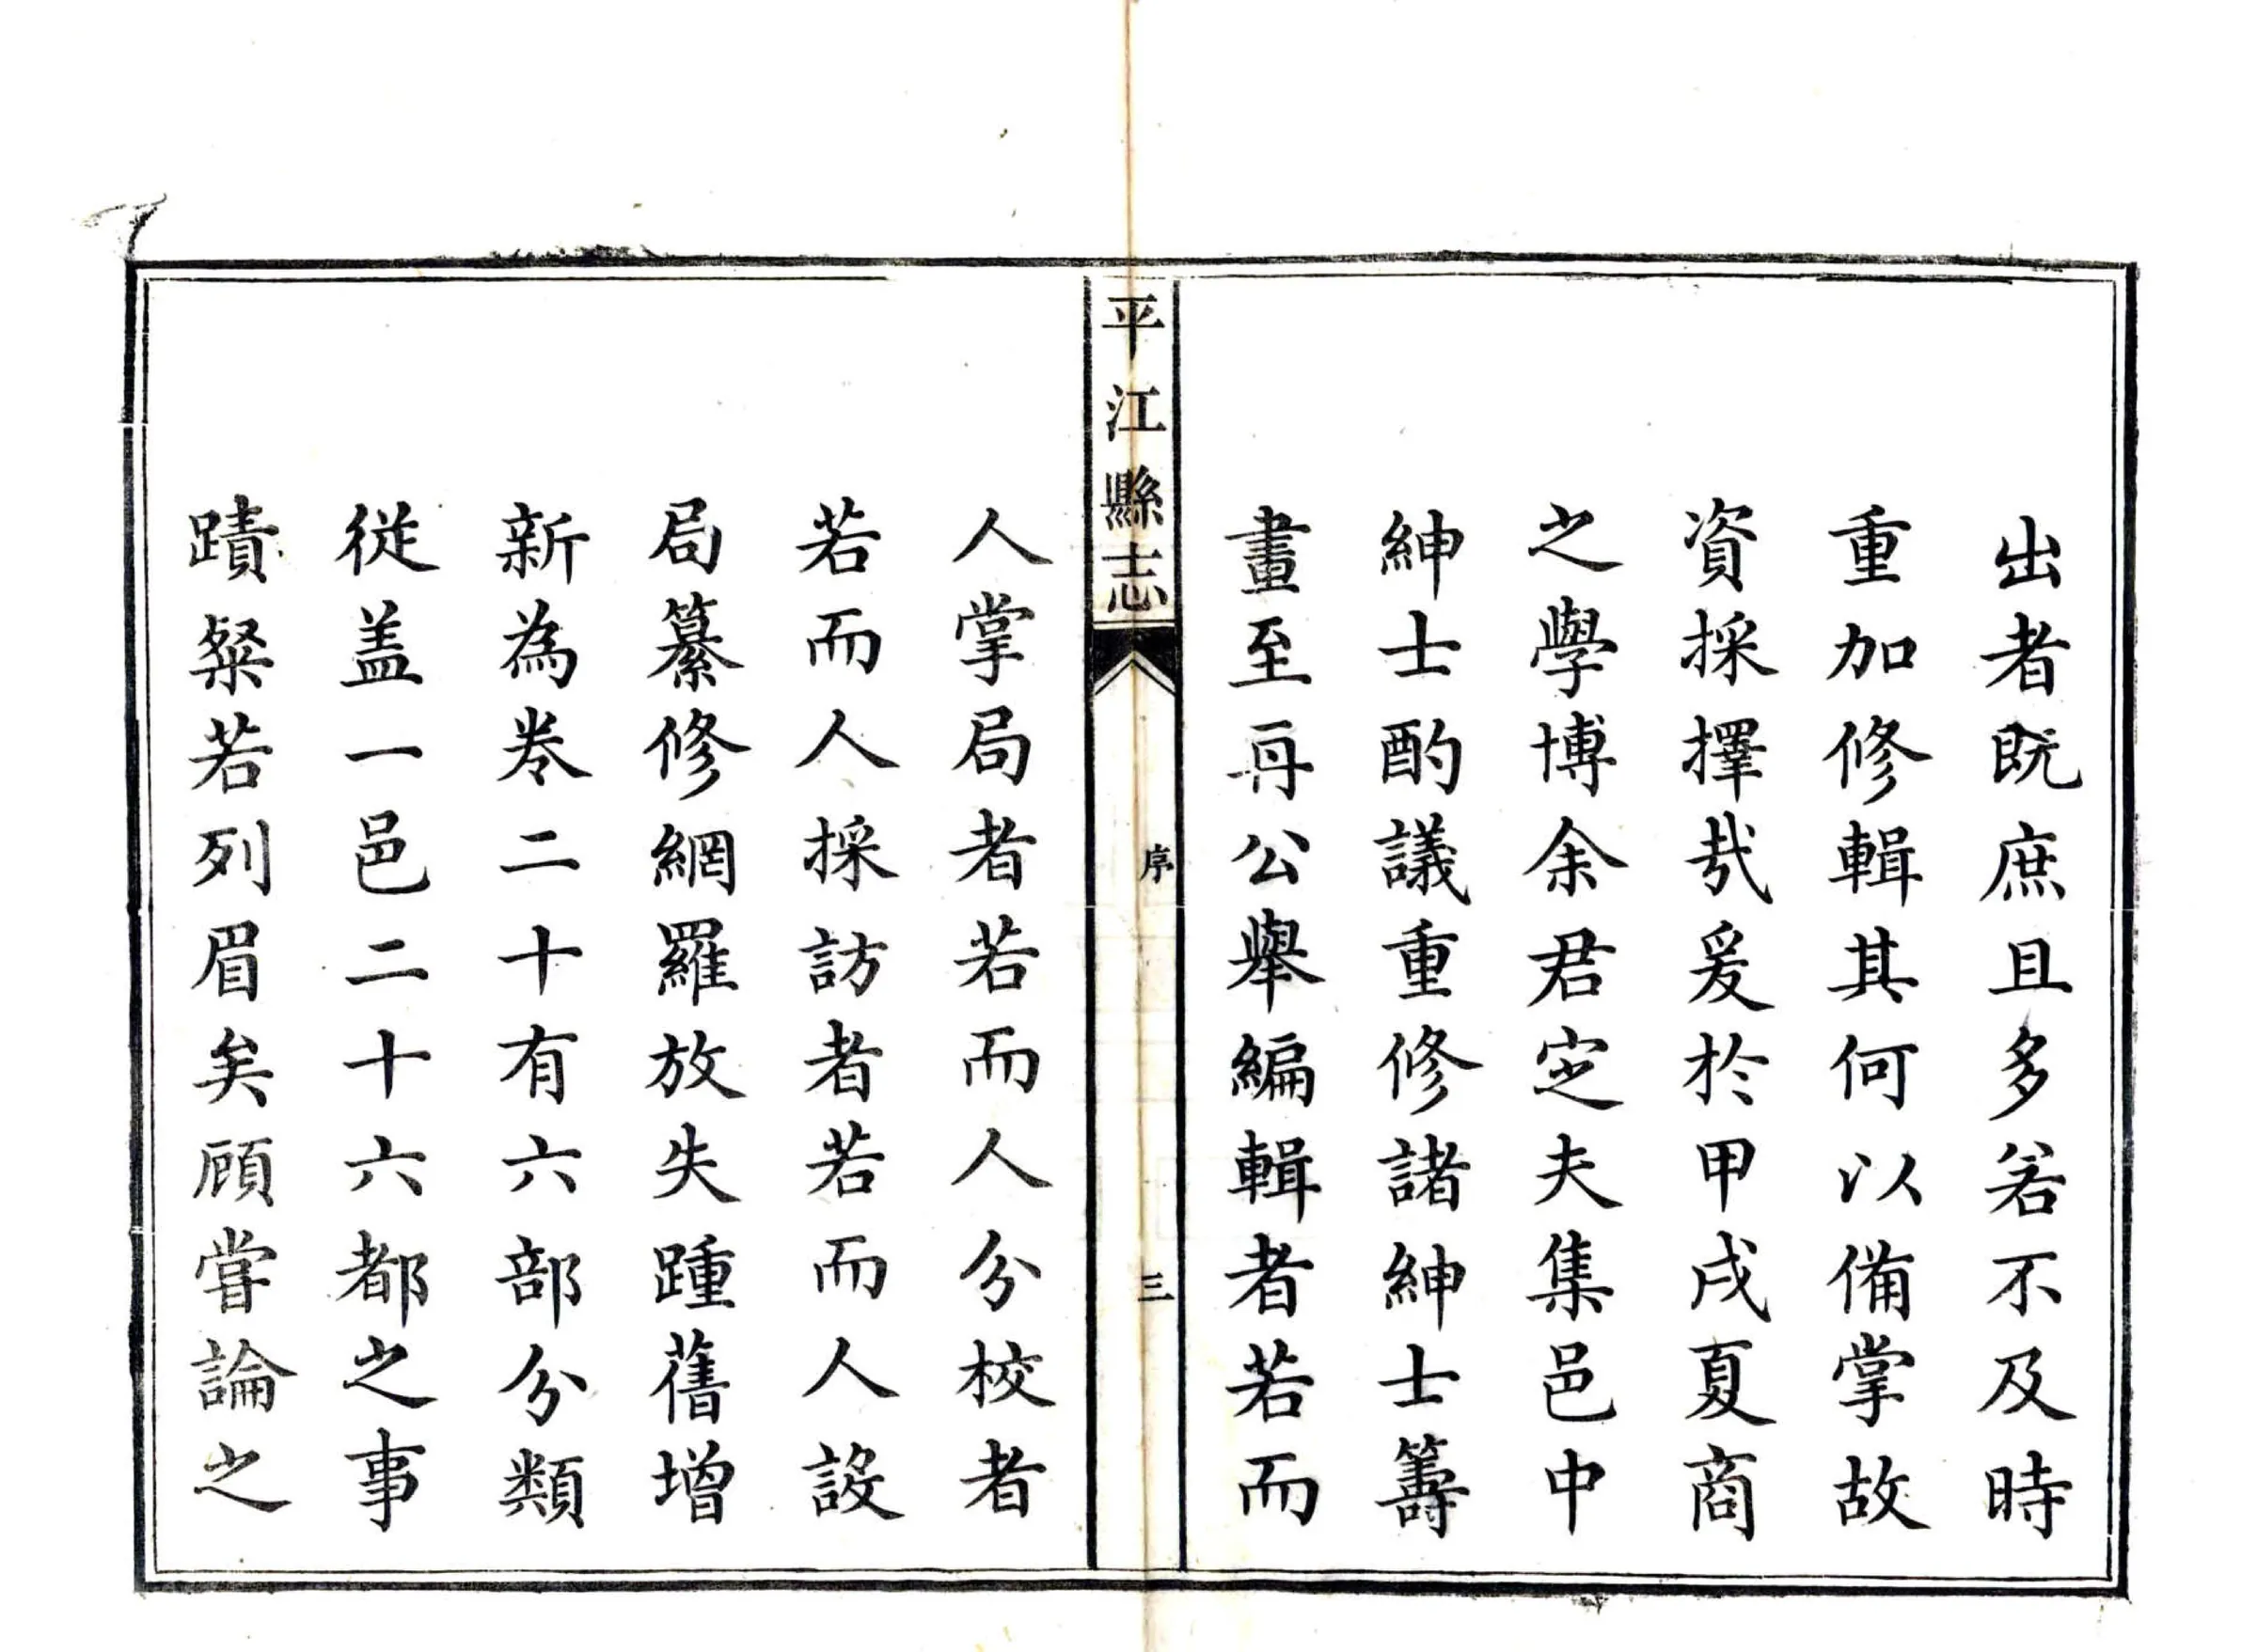 出者既庶且多若不及時
重加修輯其何以備掌故
資採擇㢤爰於甲戌夏商
之學博余君定夫集邑中
紳士酌議重修諸紳士籌
畫至再公舉編輯者若而
平江縣志
序
三
人掌局者若而人分校者
若而人採訪者若而人設
局纂修網羅放失踵舊增
新為卷二十有六部分類
從盖一邑二十六都之事
蹟粲若列眉矣顧嘗論之